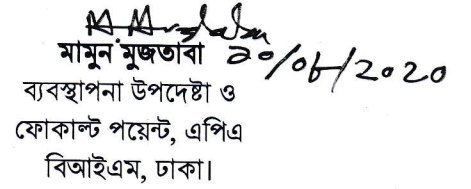 মামুন মুজতাবা ২০/০৮/2020
ব্যবস্থাপনা উপদেষ্টা ও
ফোকাল্ট পয়েন্ট, এপিএ
বিআইএম, ঢাকা।